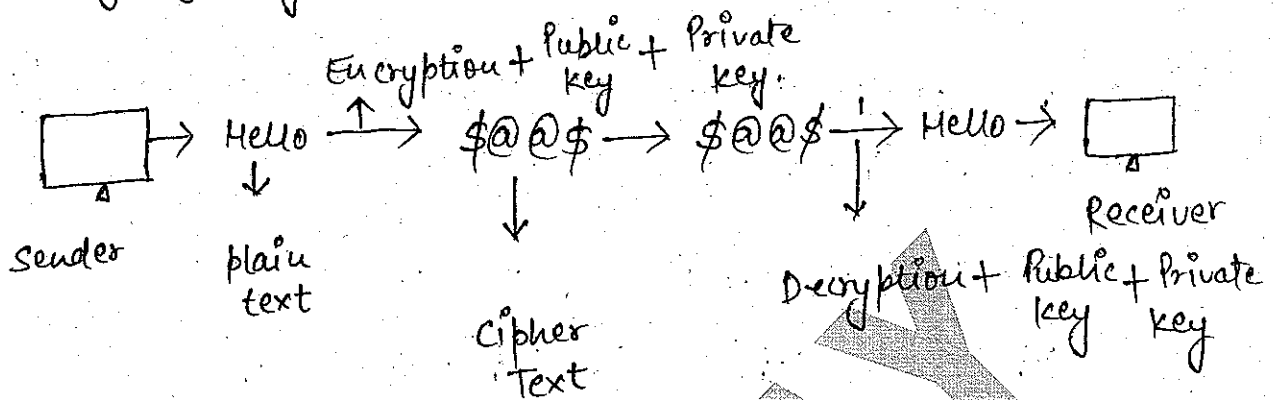 Encryption + Public key + Private key.
Hello → $@@$ → $@@$ → Hello →
Sender
plain text
Cipher Text
Receiver
Decryption + Public key + Private key